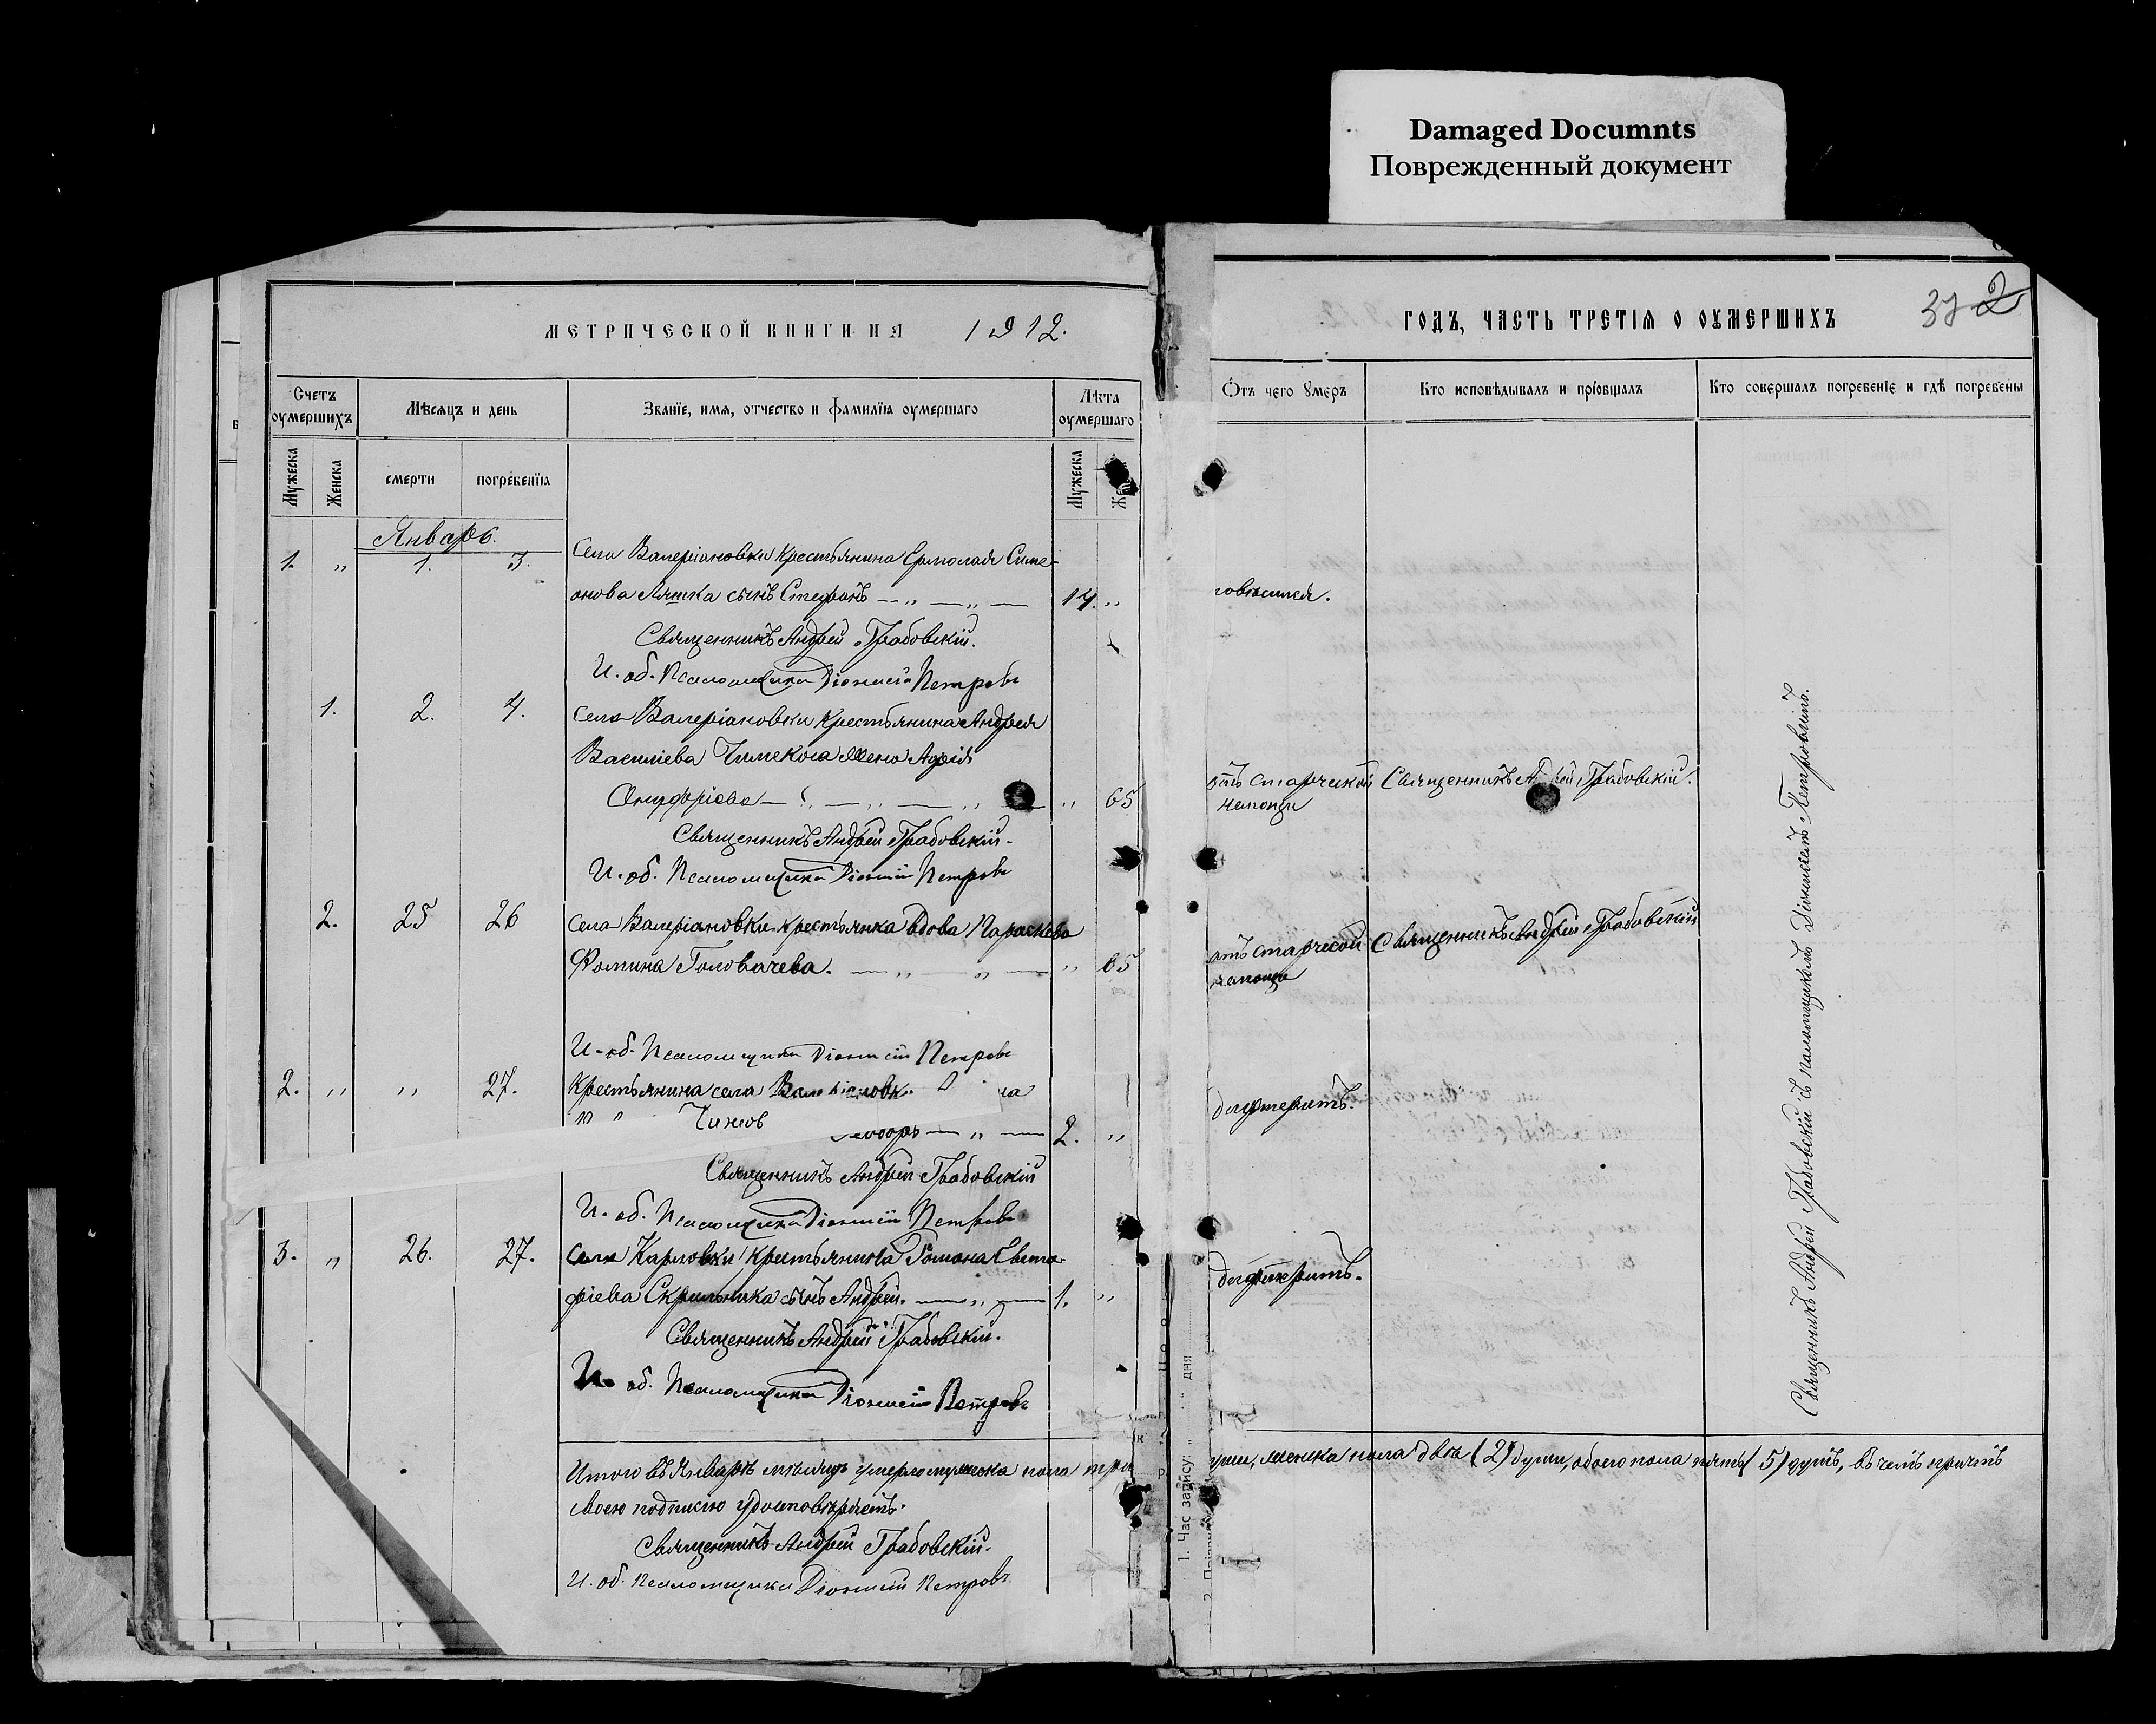 Damaged Documnts
Поврежденный документ
МЕТРИЧЕСКОЙ КНИГИ НА 1912.
Счетъ оумершихъ
Мѣсяцъ и день
Званіе, имя, отчество и фамилія оумершаго
Лѣта оумершаго
Мужеска
Женска
смерти
погребенія
Мужеска
Январь.
1. „ 1. 3. Села Валеріановки крестьянина Ермолая Симе-
онова Ляшка сынъ Стефанъ — „ — „ — 14. „
Священникъ Андрей Грабовскій.
И. об. Псаломщика Діонисій Петровъ
1. 2. 4. Села Валеріановки крестьянина Андрея
Василіева жена
Онуфріева — „ — „ — „ — „ 65
Священникъ Андрей Грабовскій.
И. об. Псаломщика Діонисій Петровъ
2. 25 26 Села Валеріановки крестьянка вдова Параскева
Фомина Головачева. — „ — „ — „ 65
И. об. Псаломщика Діонисій Петровъ
2. „ „ 27. Крестьянина села
— „ — 2. „
Священникъ Андрей Грабовскій
И. об. Псаломщика Діонисій Петровъ
3. „ 26. 27. Села Карловки крестьянина Романа Евста-
фіева Скрыльника сынъ Андрей. — „ — 1. „
Священникъ Андрей Грабовскій.
И. об. Псаломщика Діонисій Петровъ
Итого въ Январѣ мѣсяцѣ умерло мужеска пола три
своею подписью удостовѣряетъ.
Священникъ Андрей Грабовскій.
И. об. Псаломщика Діонисій Петровъ
ГОДЪ, ЧАСТЬ ТРЕТІЯ О ОУМЕРШИХЪ
Отъ чего умеръ
Кто исповѣдывалъ и пріобщалъ
Кто совершалъ погребеніе и гдѣ погребены
повѣсился.
отъ старческой Священникъ Грабовскій.
немощи
отъ старческой Священникъ Андрей Грабовскій
немощи
дифтеритъ.
дифтеритъ.
Священникъ Андрей Грабовскій съ псаломщикомъ Діонисіемъ Петровымъ.
души, женска пола двѣ (2) души, обоего пола пять (5) душъ, въ чемъ причтъ
1. Час запису: „ „ дня